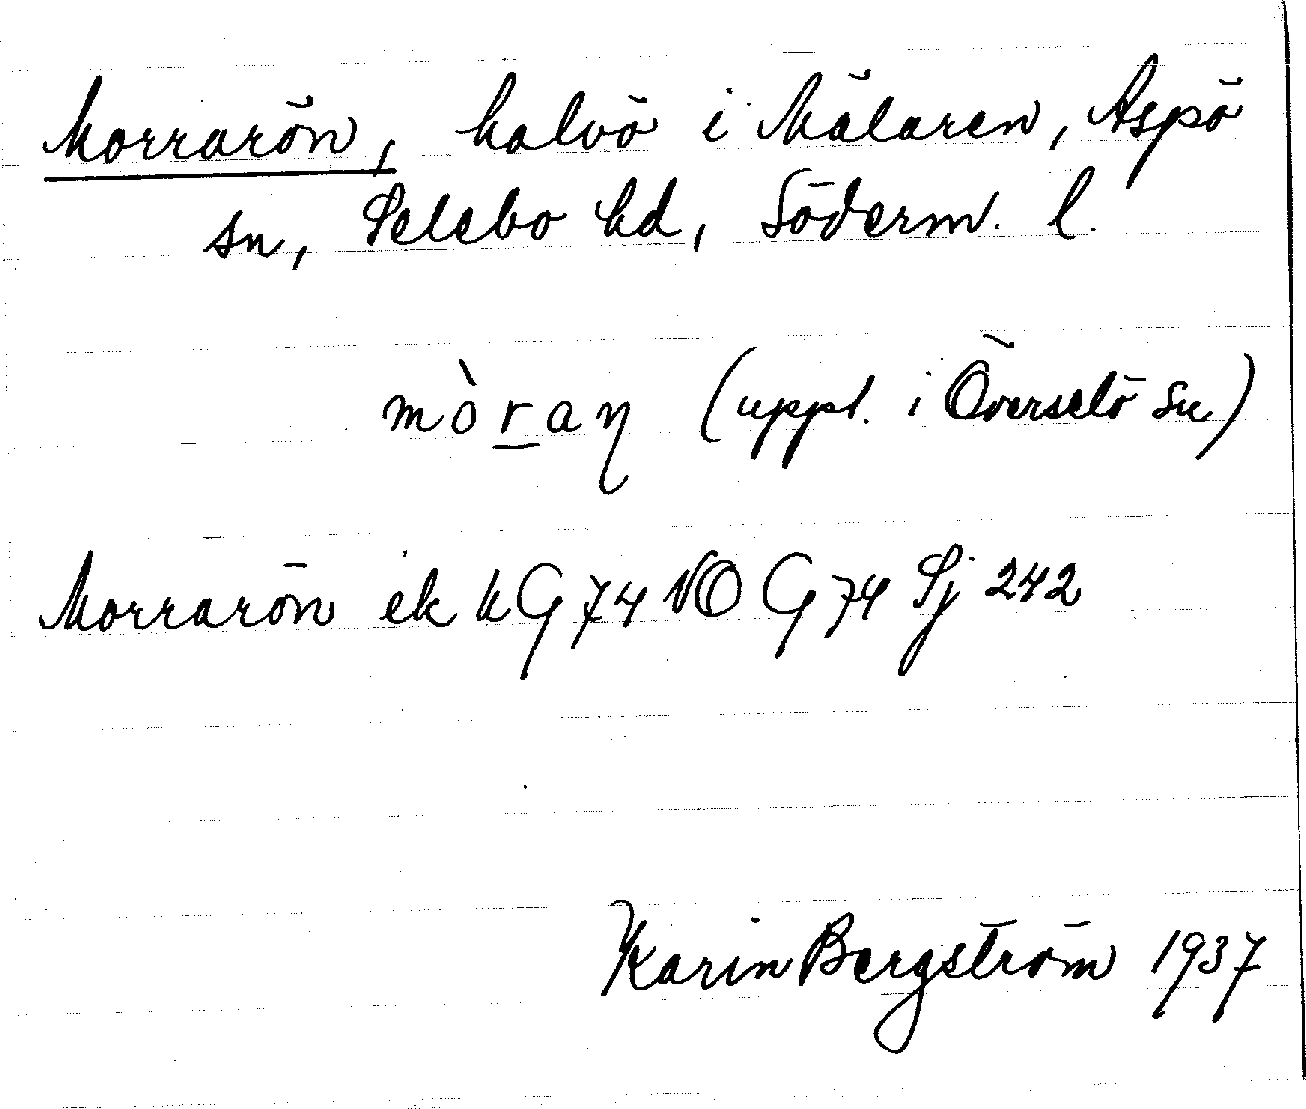 Morrarön, halvö i Mälaren, Aspö
sn, Selebo hd, Söderm. l.
mòraŋ (uppt. i Överselö sn)
Morrarön ek kG74 NO G74 Sj 242
Karin Bergström 1937